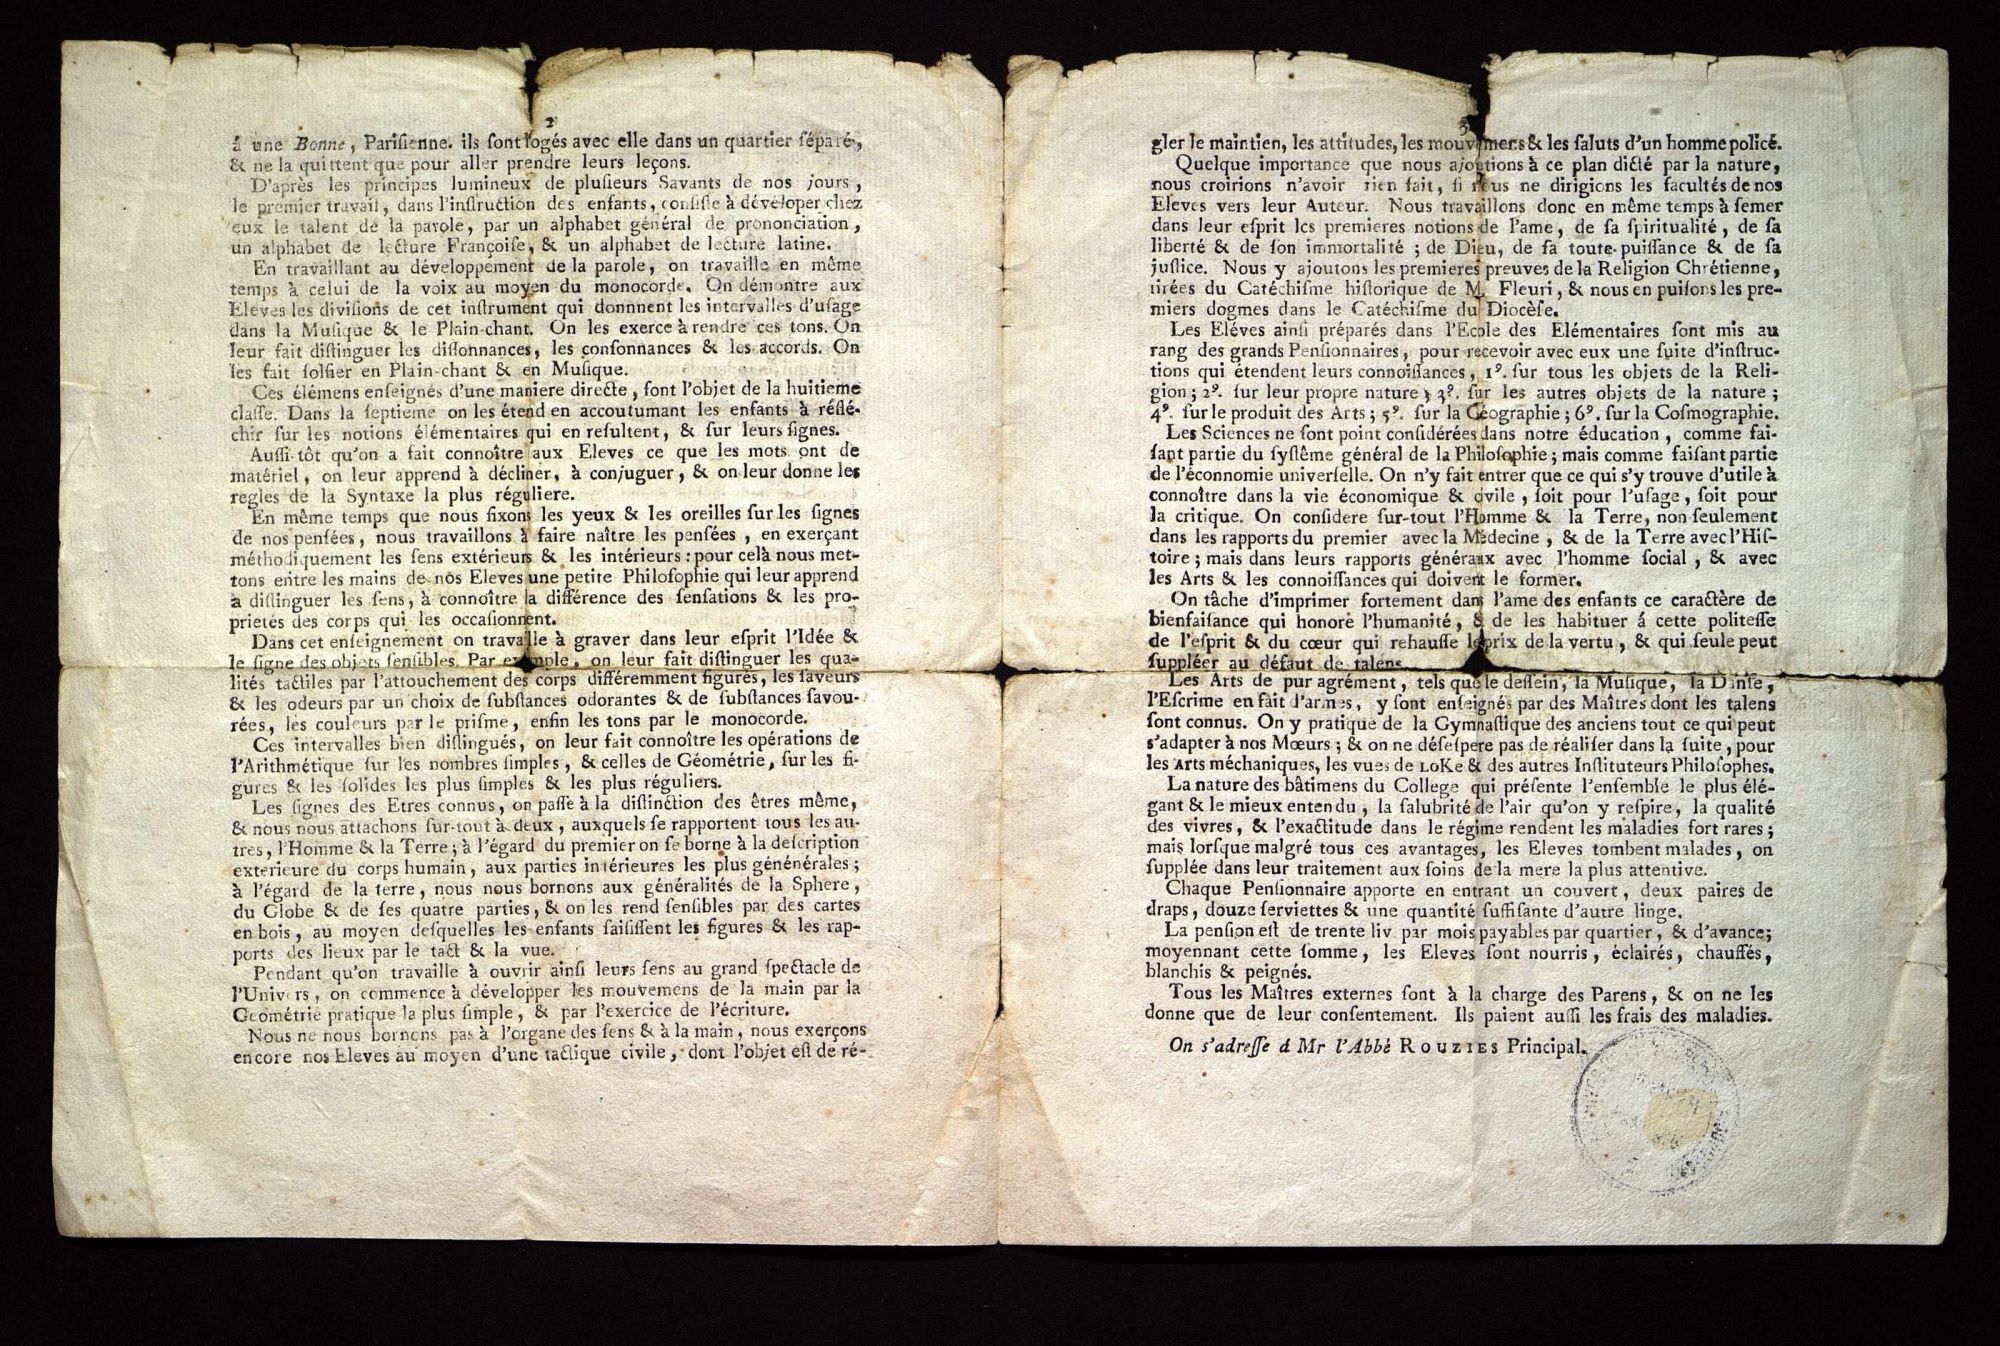 2
á une Bonne, Parisienne. ils sont logés avec elle dans un quartier séparé,
& ne la quittent que pour aller prendre leurs leçons.
D'après les principes lumineux de plusieurs Savants de nos jours,
le premier travail, dans l'instruction des enfants, consiste à développer chez
eux le talent de la parole, par un alphabet général de prononciation,
un alphabet de lecture Françoise, & un alphabet de lecture latine.
En travaillant au développement de la parole, on travaille en même
temps à celui de la voix au moyen du monocorde. On démontre aux
Eleves les divisions de cet instrument qui donnnent les intervalles d'usage
dans la Musique & le Plain-chant. On les exerce à rendre ces tons. On
leur fait distinguer les dissonnances, les consonnances & les accords. On
les fait solfier en Plain-chant & en Musique.
Ces élémens enseignés d'une maniere directe, sont l'objet de la huitieme
classe. Dans la septieme on les étend en accoutumant les enfants à réflé-
chir sur les notions élémentaires qui en resultent, & sur leurs signes.
Aussi-tôt qu'on a fait connoître aux Eleves ce que les mots ont de
matériel, on leur apprend à décliner, à conjuguer, & on leur donne les
regles de la Syntaxe la plus réguliere.
En même temps que nous fixons les yeux & les oreilles sur les signes
de nos pensées, nous travaillons à faire naître les pensées, en exerçant
méthodiquement les sens extérieurs & les intérieurs : pour celà nous met-
tons entre les mains de nos Eleves une petite Philosophie qui leur apprend
à distinguer les sens, à connoître la différence des sensations & les pro-
prietés des corps qui les occasionnent.
Dans cet enseignement on travaille à graver dans leur esprit l'Idée &
le signe des objets sensibles. Par exemple, on leur fait distinguer les qua-
lités tactiles par l'attouchement des corps différemment figurés, les saveurs
& les odeurs par un choix de substances odorantes & de substances savou-
rées, les couleurs par le prisme, enfin les tons par le monocorde.
Ces intervalles bien distingués, on leur fait connoître les opérations de
l'Arithmétique sur les nombres simples, & celles de Géométrie, sur les fi-
gures & les solides les plus simples & les plus réguliers.
Les signes des Etres connus, on passe à la distinction des êtres même,
& nous nous attachons sur-tout à deux, auxquels se rapportent tous les au-
tres, l'Homme & la Terre; à l'égard du premier on se borne à la description
extérieure du corps humain, aux parties intérieures les plus génénérales;
à l'égard de la terre, nous nous bornons aux généralités de la Sphere,
du Globe & de ses quatre parties, & on les rend sensibles par des cartes
en bois, au moyen desquelles les enfants saisissent les figures & les rap-
ports des lieux par le tact & la vue.
Pendant qu'on travaille à ouvrir ainsi leurs sens au grand spectacle de
l'Univers, on commence à développer les mouvemens de la main par la
Géométrie pratique la plus simple, & par l'exercice de l'écriture.
Nous ne nous bornons pas à l'organe des sens & à la main, nous exerçons
encore nos Eleves au moyen d'une tactique civile, dont l'objet est de ré-
3
gler le maintien, les attitudes, les mouvemens & les saluts d'un homme policé.
Quelque importance que nous ajoutions à ce plan dicté par la nature,
nous croirions n'avoir rien fait, si nous ne dirigions les facultés de nos
Eleves vers leur Auteur. Nous travaillons donc en même temps à semer
dans leur esprit les premieres notions de l'ame, de sa spiritualité, de sa
liberté & de son immortalité; de Dieu, de sa toute-puissance & de sa
justice. Nous y ajoutons les premieres preuves de la Religion Chrétienne,
tirées du Catéchisme historique de M. Fleuri, & nous en puisons les pre-
miers dogmes dans le Catéchisme du Diocèse.
Les Eléves ainsi préparés dans l'Ecole des Elémentaires sont mis au
rang des grands Pensionnaires, pour recevoir avec eux une suite d'instruc-
tions qui étendent leurs connoissances, 1º. sur tous les objets de la Reli-
gion; 2º. sur leur propre nature; 3º. sur les autres objets de la nature;
4º. sur le produit des Arts; 5º. sur la Géographie; 6º. sur la Cosmographie.
Les Sciences ne sont point considérées dans notre éducation, comme fai-
sant partie du systême général de la Philosophie; mais comme faisant partie
de l'éconnomie universelle. On n'y fait entrer que ce qui s'y trouve d'utile à
connoître dans la vie économique & civile, soit pour l'usage, soit pour
la critique. On considere sur-tout l'Homme & la Terre, non seulement
dans les rapports du premier avec la Médecine, & de la Terre avec l'His-
toire; mais dans leurs rapports généraux avec l'homme social, & avec
les Arts & les connoissances qui doivent le former.
On tâche d'imprimer fortement dans l'ame des enfants ce caractère de
bienfaisance qui honore l'humanité, & de les habituer á cette politesse
de l'esprit & du cœur qui rehausse le prix de la vertu, & qui seule peut
suppléer au défaut de talens.
Les Arts de pur agrément, tels que le dessein, la Musique, la Danse,
l'Escrime en fait d'armes, y sont enseignés par des Maîtres dont les talens
sont connus. On y pratique de la Gymnastique des anciens tout ce qui peut
s'adapter à nos Mœurs; & on ne désespere pas de réaliser dans la suite, pour
les Arts méchaniques, les vues de LOKe & des autres Instituteurs Philosophes.
La nature des bâtimens du College qui présente l'ensemble le plus élé-
gant & le mieux entendu, la salubrité de l'air qu'on y respire, la qualité
des vivres, & l'exactitude dans le régime rendent les maladies fort rares;
mais lorsque malgré tous ces avantages, les Eleves tombent malades, on
supplée dans leur traitement aux soins de la mere la plus attentive.
Chaque Pensionnaire apporte en entrant un couvert, deux paires de
draps, douze serviettes & une quantité suffisante d'autre linge.
La pension est de trente liv par mois payables par quartier, & d'avance;
moyennant cette somme, les Eleves sont nourris, éclairés, chauffés,
blanchis & peignés.
Tous les Maîtres externes sont à la charge des Parens, & on ne les
donne que de leur consentement. Ils paient aussi les frais des maladies.
On s'adresse á Mr l'Abbé ROUZIES Principal.